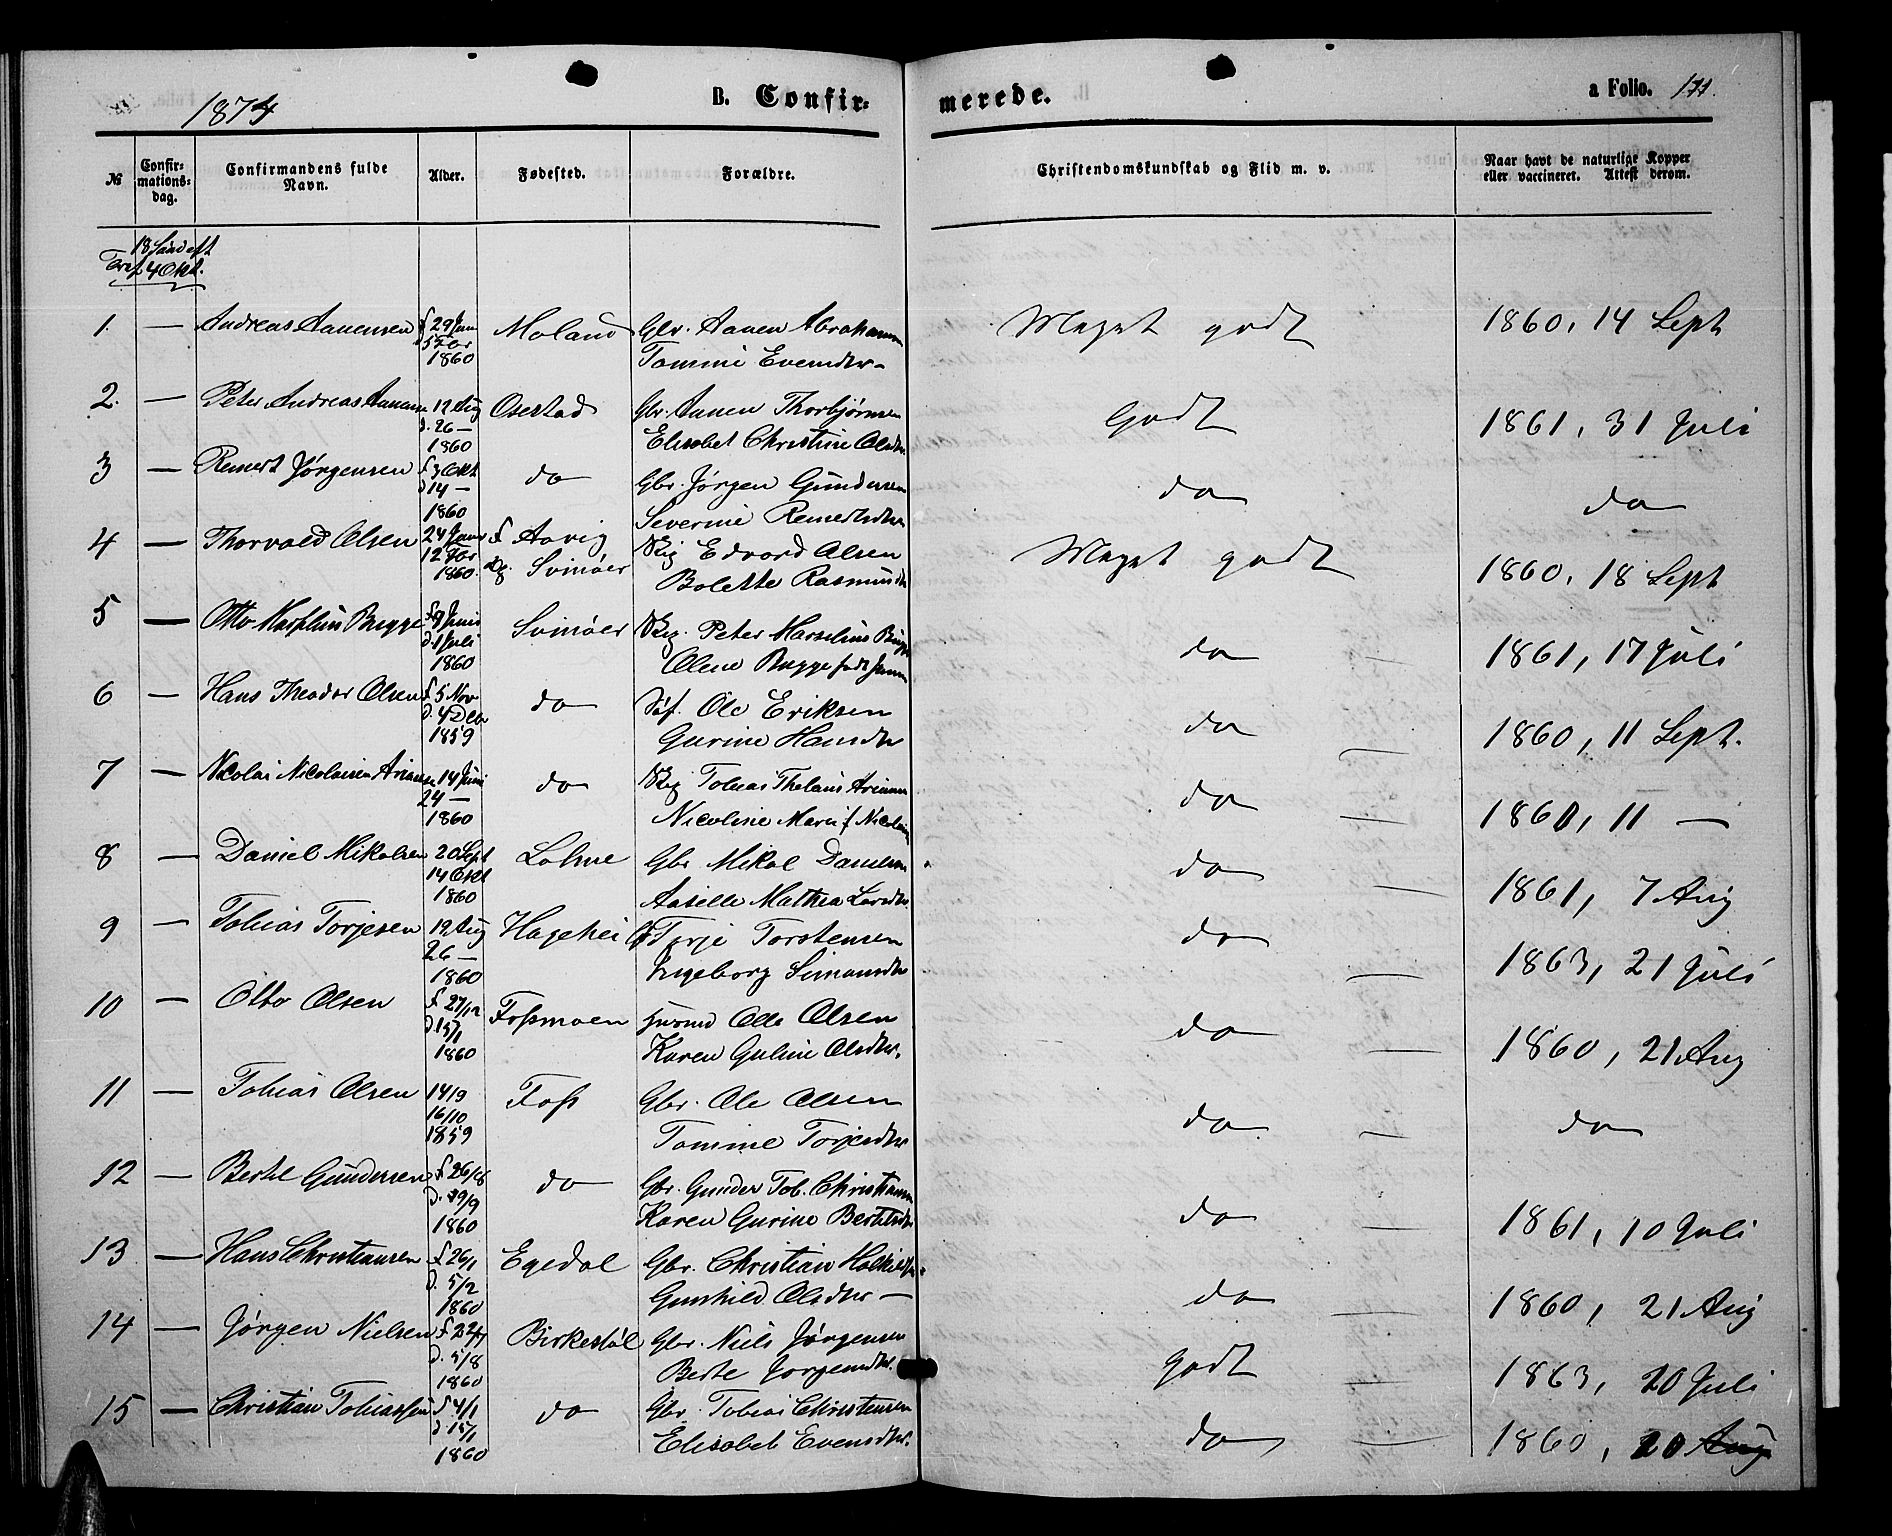 1874 B. Confirmerede. a Folio. 171.
№ Confirmations-dag. Confirmandens fulde Navn. Alder. Fødested. Forældre. Christendomskundskab og Flid m. v. Naar havt de naturlige Kopper eller vaccineret. Attest derom.
18 Sønd eft
Tref 4 Okt.
1. — Andreas Aanensen f 29 Jan Moland Gbr. Aanen Abrahamsen Meget godt 1860, 14 Sept
1860 Tomine Evensdtr
2. — Peter Andreas Aanensen 12 Aug Osestad Gbr. Aanen Thorbjørnsen Godt 1861, 31 Juli
d. 26 —
1860 Elisabet Christine Olsdtr
3 — Remert Jørgensen f 3 Okt do Gbr. Jørgen Gundersen do do
d 14 —
1860 Severine Remertsdtr
4 — Thorvald Olsen 24 Janr f Aavig Skig Edvard Olsen Meget godt 1860, 18 Sept
12 Febr
1860. Svinøer Bolette Rasmusdtr
5 — Otto Marselius Bugge f 9 Juni Svinøer Skig. Peter Marselius Bugge do — 1861, 17 Juli
d. 1 Juli
1860 Olene Bugge født
6 — Hans Theodor Olsen f 5 Nov do Søf. Ole Eriksen do — 1860, 11 Sept.
d. 4 Dec
1859 Gurine Hansdtr
7 — Nicolai Nicolaisen 14 Juni do Skig Tobias do — 1860, 11 —
24 —
1860 Nicoline Marie f
8 — Daniel Mikalsen 20 Sept Lohne Gbr Mikal Danielsen do — 1861, 7 Aug
14 Okt
1860 Aaselle Mathea
9 — Tobias Torjesen 12 Aug Hagehei Terje Torstensen do — 1863, 21 Juli
26 —
1860 Ingeborg Simonsdtr
10 — Otto Olsen f 27/12 Fossmoen Husmd Olle Olsen do — 1860, 21 Aug
d. 15/1
1860 Karen Guline Olsdtr.
11 — Tobias Olsen 14/9 Foss Gbr. Ole Olsen do — do
16/10
1859 Tomine Torjesdtr
12 — Bertel Gundersen f 26/8 do Gbr. Gunder Tob. Christiansen do — 1861, 10 Juli
d. 29/9
1860 Karen Gurine Bertelsdtr
13 — Hans Christiansen f 26/1 Egedal Gbr. Christian do — 1860, 21 Aug
d. 5/2
1860 Gunhild Olsdtr —
14 — Jørgen Nielsen f 22/7 Birkestøl Gbr. Niels Jørgensen godt 1863, 20 Juli
d. 5/8
1860 Berte Jørgensdtr.
15 — Christian Tobiassen f 4/1 do Gbr. Tobias Christensen do — 1860, 20 Aug
d 15/1
1860 Elisabet Evensdtr.